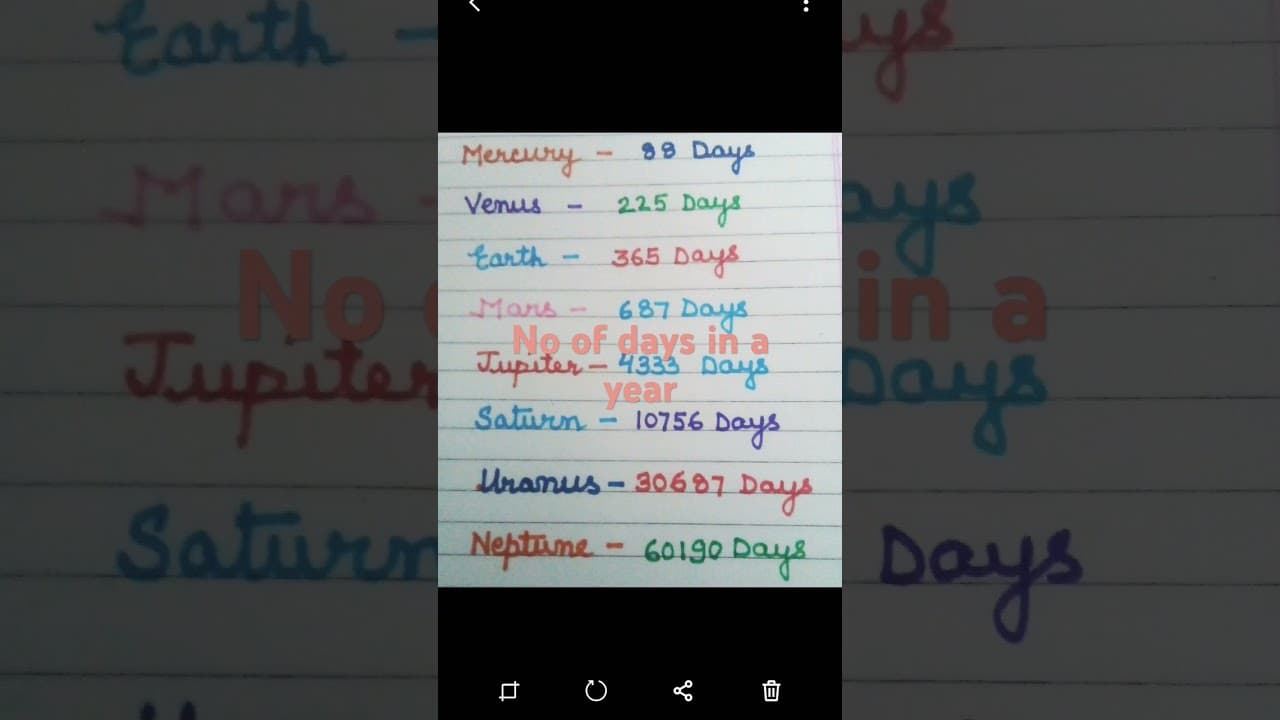 Mercury - 88 Days
Venus - 225 Days
Earth - 365 Days
Mars - 687 Days
No of days in a
Jupiter - 4333 Days
year
Saturn - 10756 Days
Uranus - 30687 Days
Neptune - 60190 Days